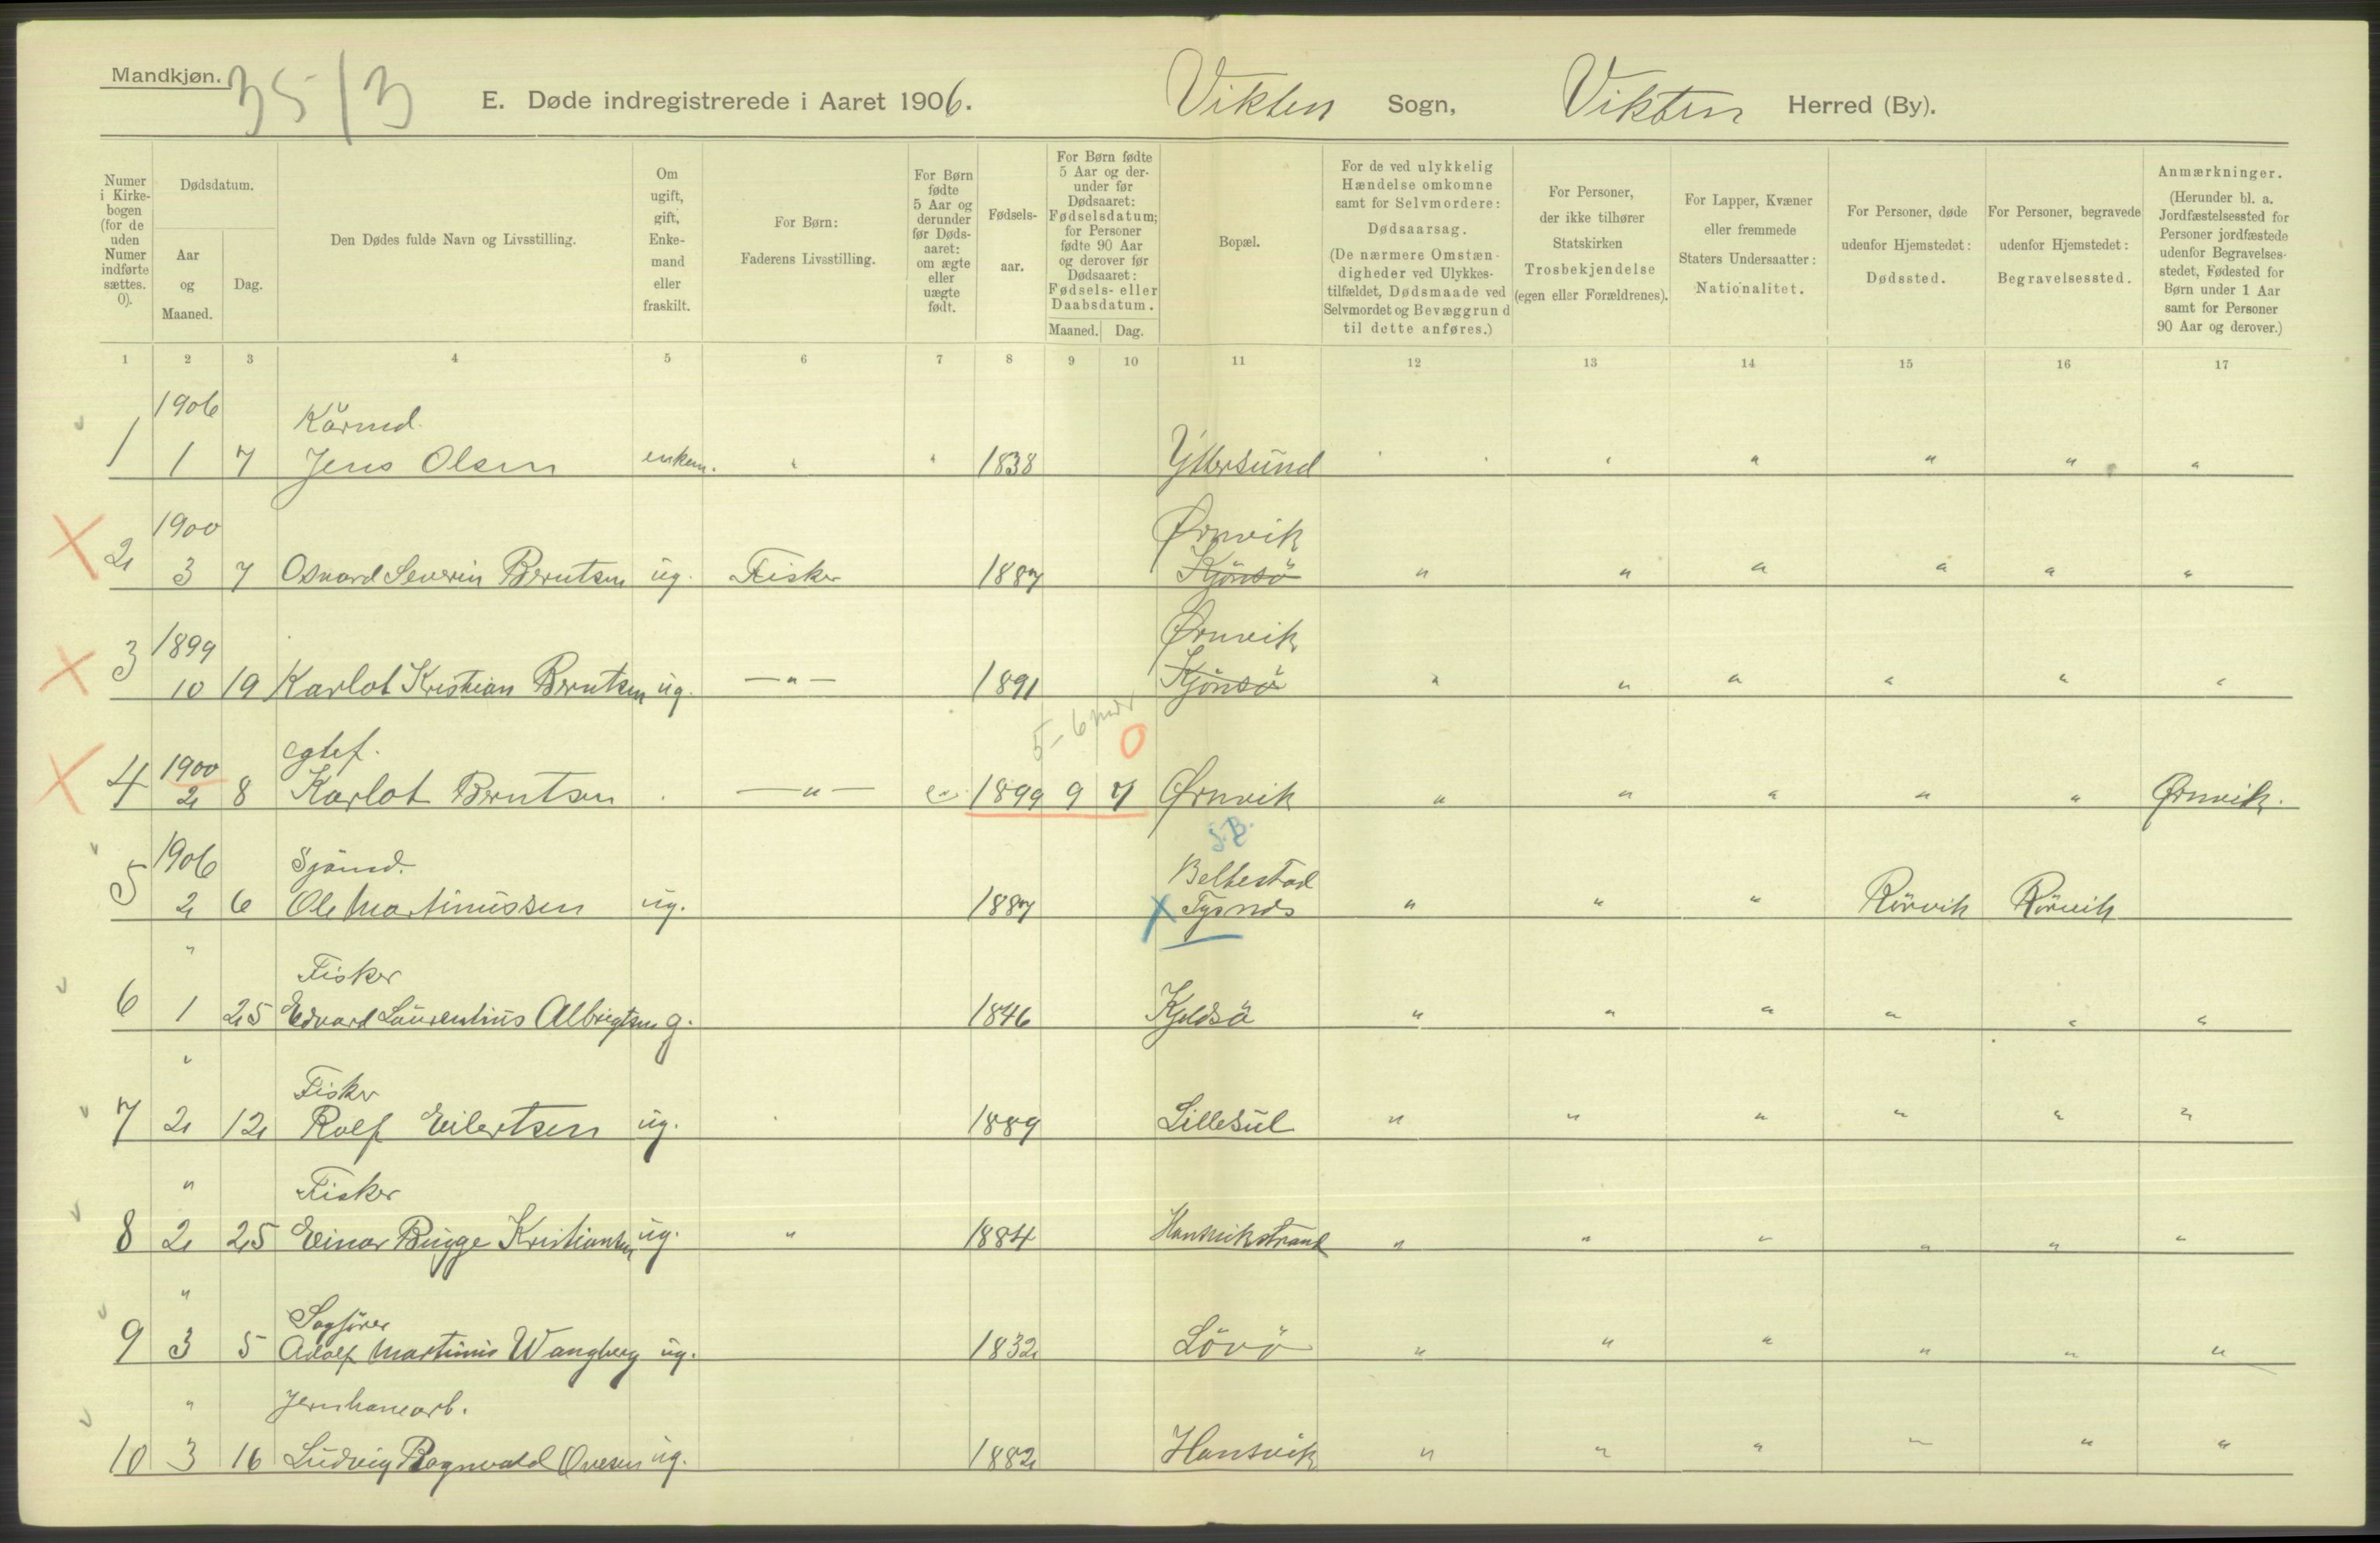 Mandkjøn.
35/3
E. Døde indregistrerede i Aaret 1906. Vikten Sogn, Vikten Herred (By).
Numer i Kirke-bogen (for de uden Numer indførte sættes. 0).
Dødsdatum.
Aar og Maaned.
Dag.
Den Dødes fulde Navn og Livsstilling.
Om ugift, gift, Enke-mand eller fraskilt.
For Børn: Faderens Livsstilling.
For Børn fødte 5 Aar og derunder før Døds-aaret: om ægte eller uægte født.
Fødsels-aar.
For Børn fødte 5 Aar og der-under før Dødsaaret: Fødselsdatum; for Personer fødte 90 Aar og derover før Dødsaaret: Fødsels- eller Daabsdatum.
Maaned. Dag.
Bopæl.
For de ved ulykkelig Hændelse omkomne samt for Selvmordere: Dødsaarsag. (De nærmere Omstæn-digheder ved Ulykkes-tilfældet, Dødsmaade ved Selvmordet og Bevæggrund til dette anføres.)
For Personer, der ikke tilhører Statskirken Trosbekjendelse (egen eller Forældrenes).
For Lapper, Kvæner eller fremmede Staters Undersaatter: Nationalitet.
For Personer, døde udenfor Hjemstedet: Dødssted.
For Personer, begravede udenfor Hjemstedet: Begravelsessted.
Anmærkninger. (Herunder bl. a. Jordfæstelsessted for Personer jordfæstede udenfor Begravelses-stedet, Fødested for Børn under 1 Aar samt for Personer 90 Aar og derover.)
1 2 3 4 5 6 7 8 9 10 11 12 13 14 15 16 17
1906 Kårmd.
1 1 7 Jens Olsen enkem. " " 1838 Yttersund " " " " " "
1900 Ørnvik
2 3 7 Osvard Severin Berntsen ug. Fisker 1887 Kjönsö " " " " " "
1899 Ørnvik
3 10 19 Karlot Kristian Berntsen ug. —"— 1891 Kjönsö " " " " " "
5-6 mdr
0
1900 egtef.
4 2 8 Karlot Berntsen —"— e. 1899 9 7 Ørnvik " " " " " Ørnvik.
S.B.
1906 Sjömd. Beltestad
5 2 6 Ole Martinussen ug. 1887 Tysnes " " " Rörvik Rörvik
" Fisker
6 1 25 Edvard Laurentius Albrigtsen g. 1846 Kjeldsö " " " " " "
" Fisker
7 2 12 Rolf Eilertsen ug. 1889 Lillesul " " " " " "
" Fisker
8 2 25 Einar Bugge Kristiansen ug. " 1884 " " " " " "
" Sagförer
9 3 5 Adolf Martinus Wangberg ug. 1832 Lövö " " " " " "
" Jernbanearb.
10 3 16 Ludvig Rognvald Ovesen ug. 1882 Hansvik " " " " " "